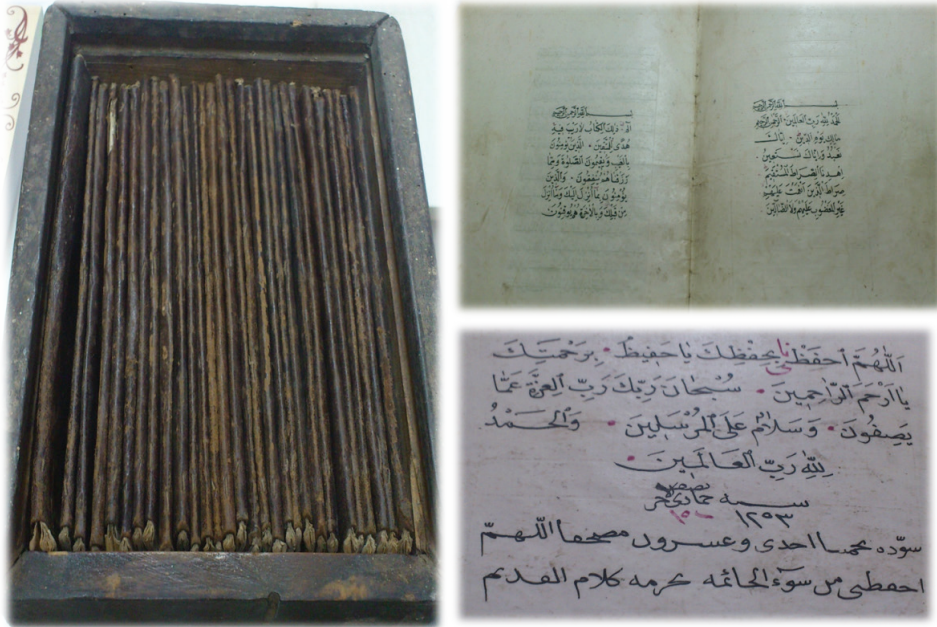 بسم الله الرحمن الرحيم
الحمد لله رب العالمين . الرحمن الرحيم
مالك يوم الدين . اياك
نعبد و اياك نستعين .
اهدنا الصراط المستقيم
صراط الذين انعمت عليهم
غير المغضوب عليهم ولا الضالين
بسم الله الرحمن الرحيم
الم ذلك الكتاب لا ريب فيه
هدى للمتقين . الذين يؤمنون
بالغيب ويقيمون الصلوة ومما
رزقناهم ينفقون . والذين
يؤمنون بما انزل اليك وما انزل
من قبلك وبالاخرة هم يوقنون
اَللّٰهُمَّ اَحفَظْنا بِحِفْظِكَ يَا حَفِيظُ . بِرَحْمَتِكَ
يَا اَرْحَمَ الرَّاحِمِينَ . سُبْحَانَ رَبِّكَ رَبِّ العِزَّةِ عَمَّا
يَصِفُونَ . وَسَلاَمٌ عَلَى المُرْسَلِينَ . وَالحَمْدُ
لِلّٰهِ رَبِّ العَالَمِينَ .
١٢٥٣
سوّده احدى وعسرون مصحفا اللّهمّ
احفظنى من سوء الخاتمه كلام القديم